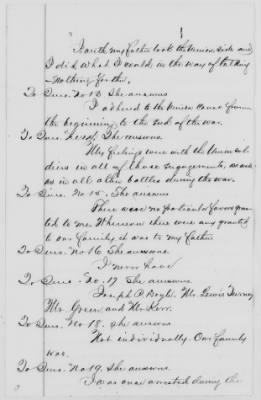 I with my father took the Union side and
I did what I could in the way of talking
- Nothing further.
To Ques. No 13 She answers
I adhered to the Union Cause from
the beginning to the end of the war.
To Ques. No 14 She answers
My feelings were with the Union sol
diers in all of those engagements, as well
as in all other battles during the war.
To Ques. No 15. She answers
There were no particular favors gran
ted to me. Whatever there were any granted
to our family it was to my father
To Ques. No 16 She answers
I never have
To Ques. No. 17 She answers
Joseph P Doyle, Mr. Lewis Turner,
Mr. Green and Mr Kerr.
To Ques. No 18. She answers
Not individually. Our family
was.
To Ques. No 19. She answers
I was once arrested during the